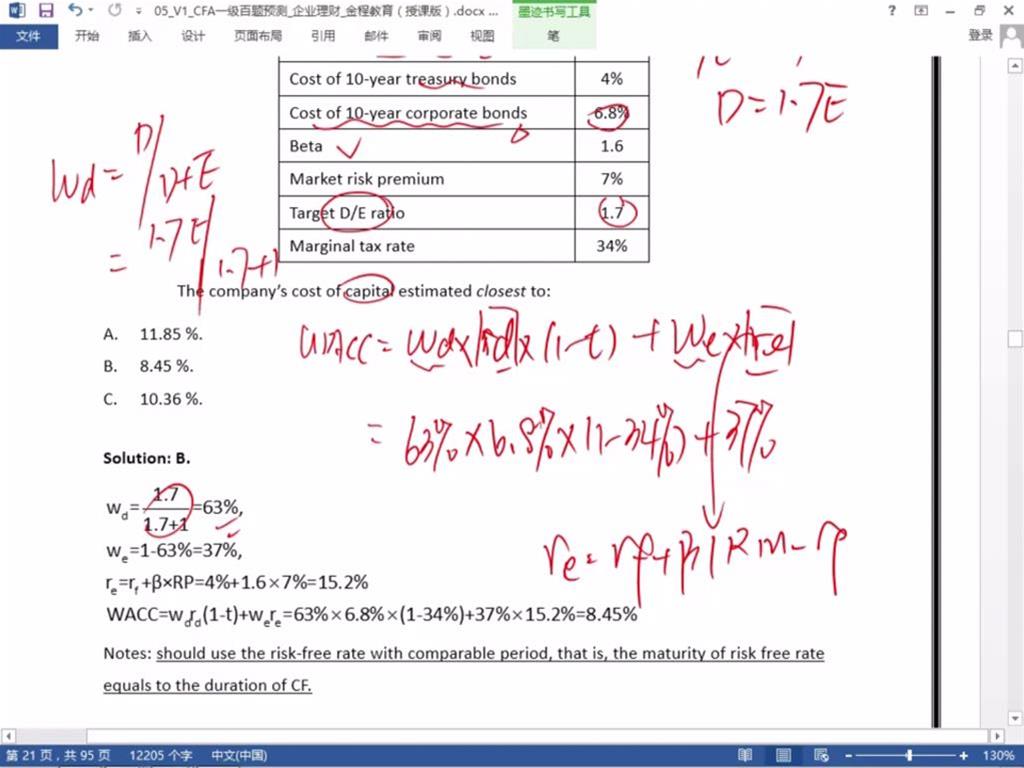 05_V1_CFA一级百题预测_企业理财_金程教育（授课版）.docx ...
墨迹书写工具
文件 开始 插入 设计 页面布局 引用 邮件 审阅 视图 笔 登录
D=1.7E
Cost of 10-year treasury bonds 4%
Cost of 10-year corporate bonds 6.8%
Beta 1.6
Market risk premium 7%
Target D/E ratio 1.7
Marginal tax rate 34%
Wd= D/D+E
= 1.7E/1.7+1
The company's cost of capital estimated closest to:
A. 11.85 %.
B. 8.45 %.
C. 10.36 %.
WACC= Wd×rd×(1-t) + We×re
= 63%×6.8%×(1-34%)+37%
re= rf+β(Rm-rf
Solution: B.
wd=1.7/1.7+1=63%,
we=1-63%=37%,
re=rf+β×RP=4%+1.6×7%=15.2%
WACC=wdrd(1-t)+were=63%×6.8%×(1-34%)+37%×15.2%=8.45%
Notes: should use the risk-free rate with comparable period, that is, the maturity of risk free rate
equals to the duration of CF.
第 21 页，共 95 页 12205 个字 中文(中国) 130%